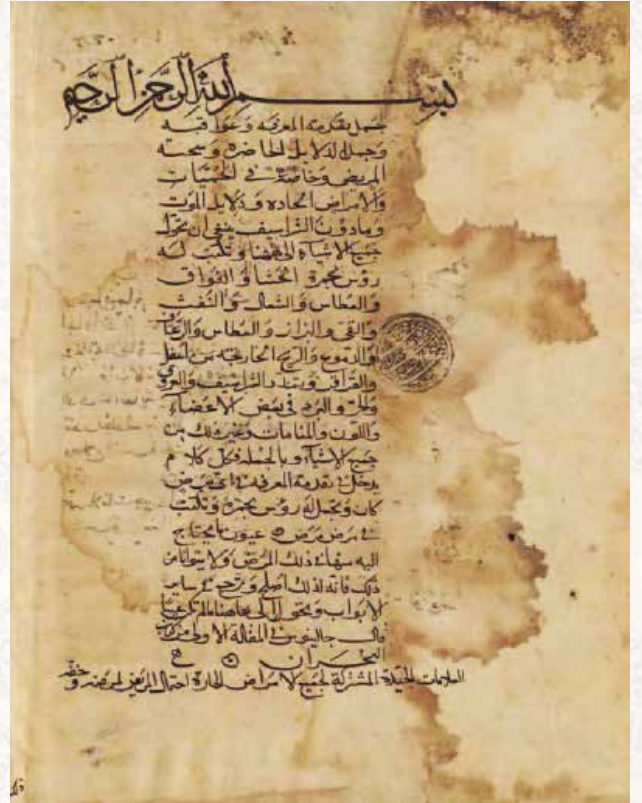 بسم الله الرحمن الرحيم
جمل تقدمة المعرفة وعواقبه
وجملة الدلايل الحاضرة وسحنة
المريض وخاصة في الحميات
والامراض الحادة ودلايل الموت
ومادون الشراسيف ينبغي ان تحول
جميع الاشيآء الى ههنا وتكتب له
رؤس بحمرة الجشا والفواق
والعطاس والسعال والنفث
والقي والبراز والعطاس والرعاف
والدموع والريح الخارجة من اسفل
والقراقر وتمدد الشراسيف والعرق
والحر والبرد في بعض الاعضآء
واللون والمنامات وغير ذلك من
جميع الاشيآء وبالجملة فكل كلام
يدخل في تقدمة المعرفة في اي مرض
كان وتجمل له رؤس بحمرة وتكتب
في مرض مرض عيون ما يحتاج
اليه منها في ذلك المرض ولا يتوانا من
ذلك فانه لذلك اصلي وترجع سائر
الابواب
قال جالينوس في المقالة الاولى من كتاب
البحران
العلامات الجيدة المشتركة لجميع الامراض الحادة احتمال المريض لمرضه وخفته